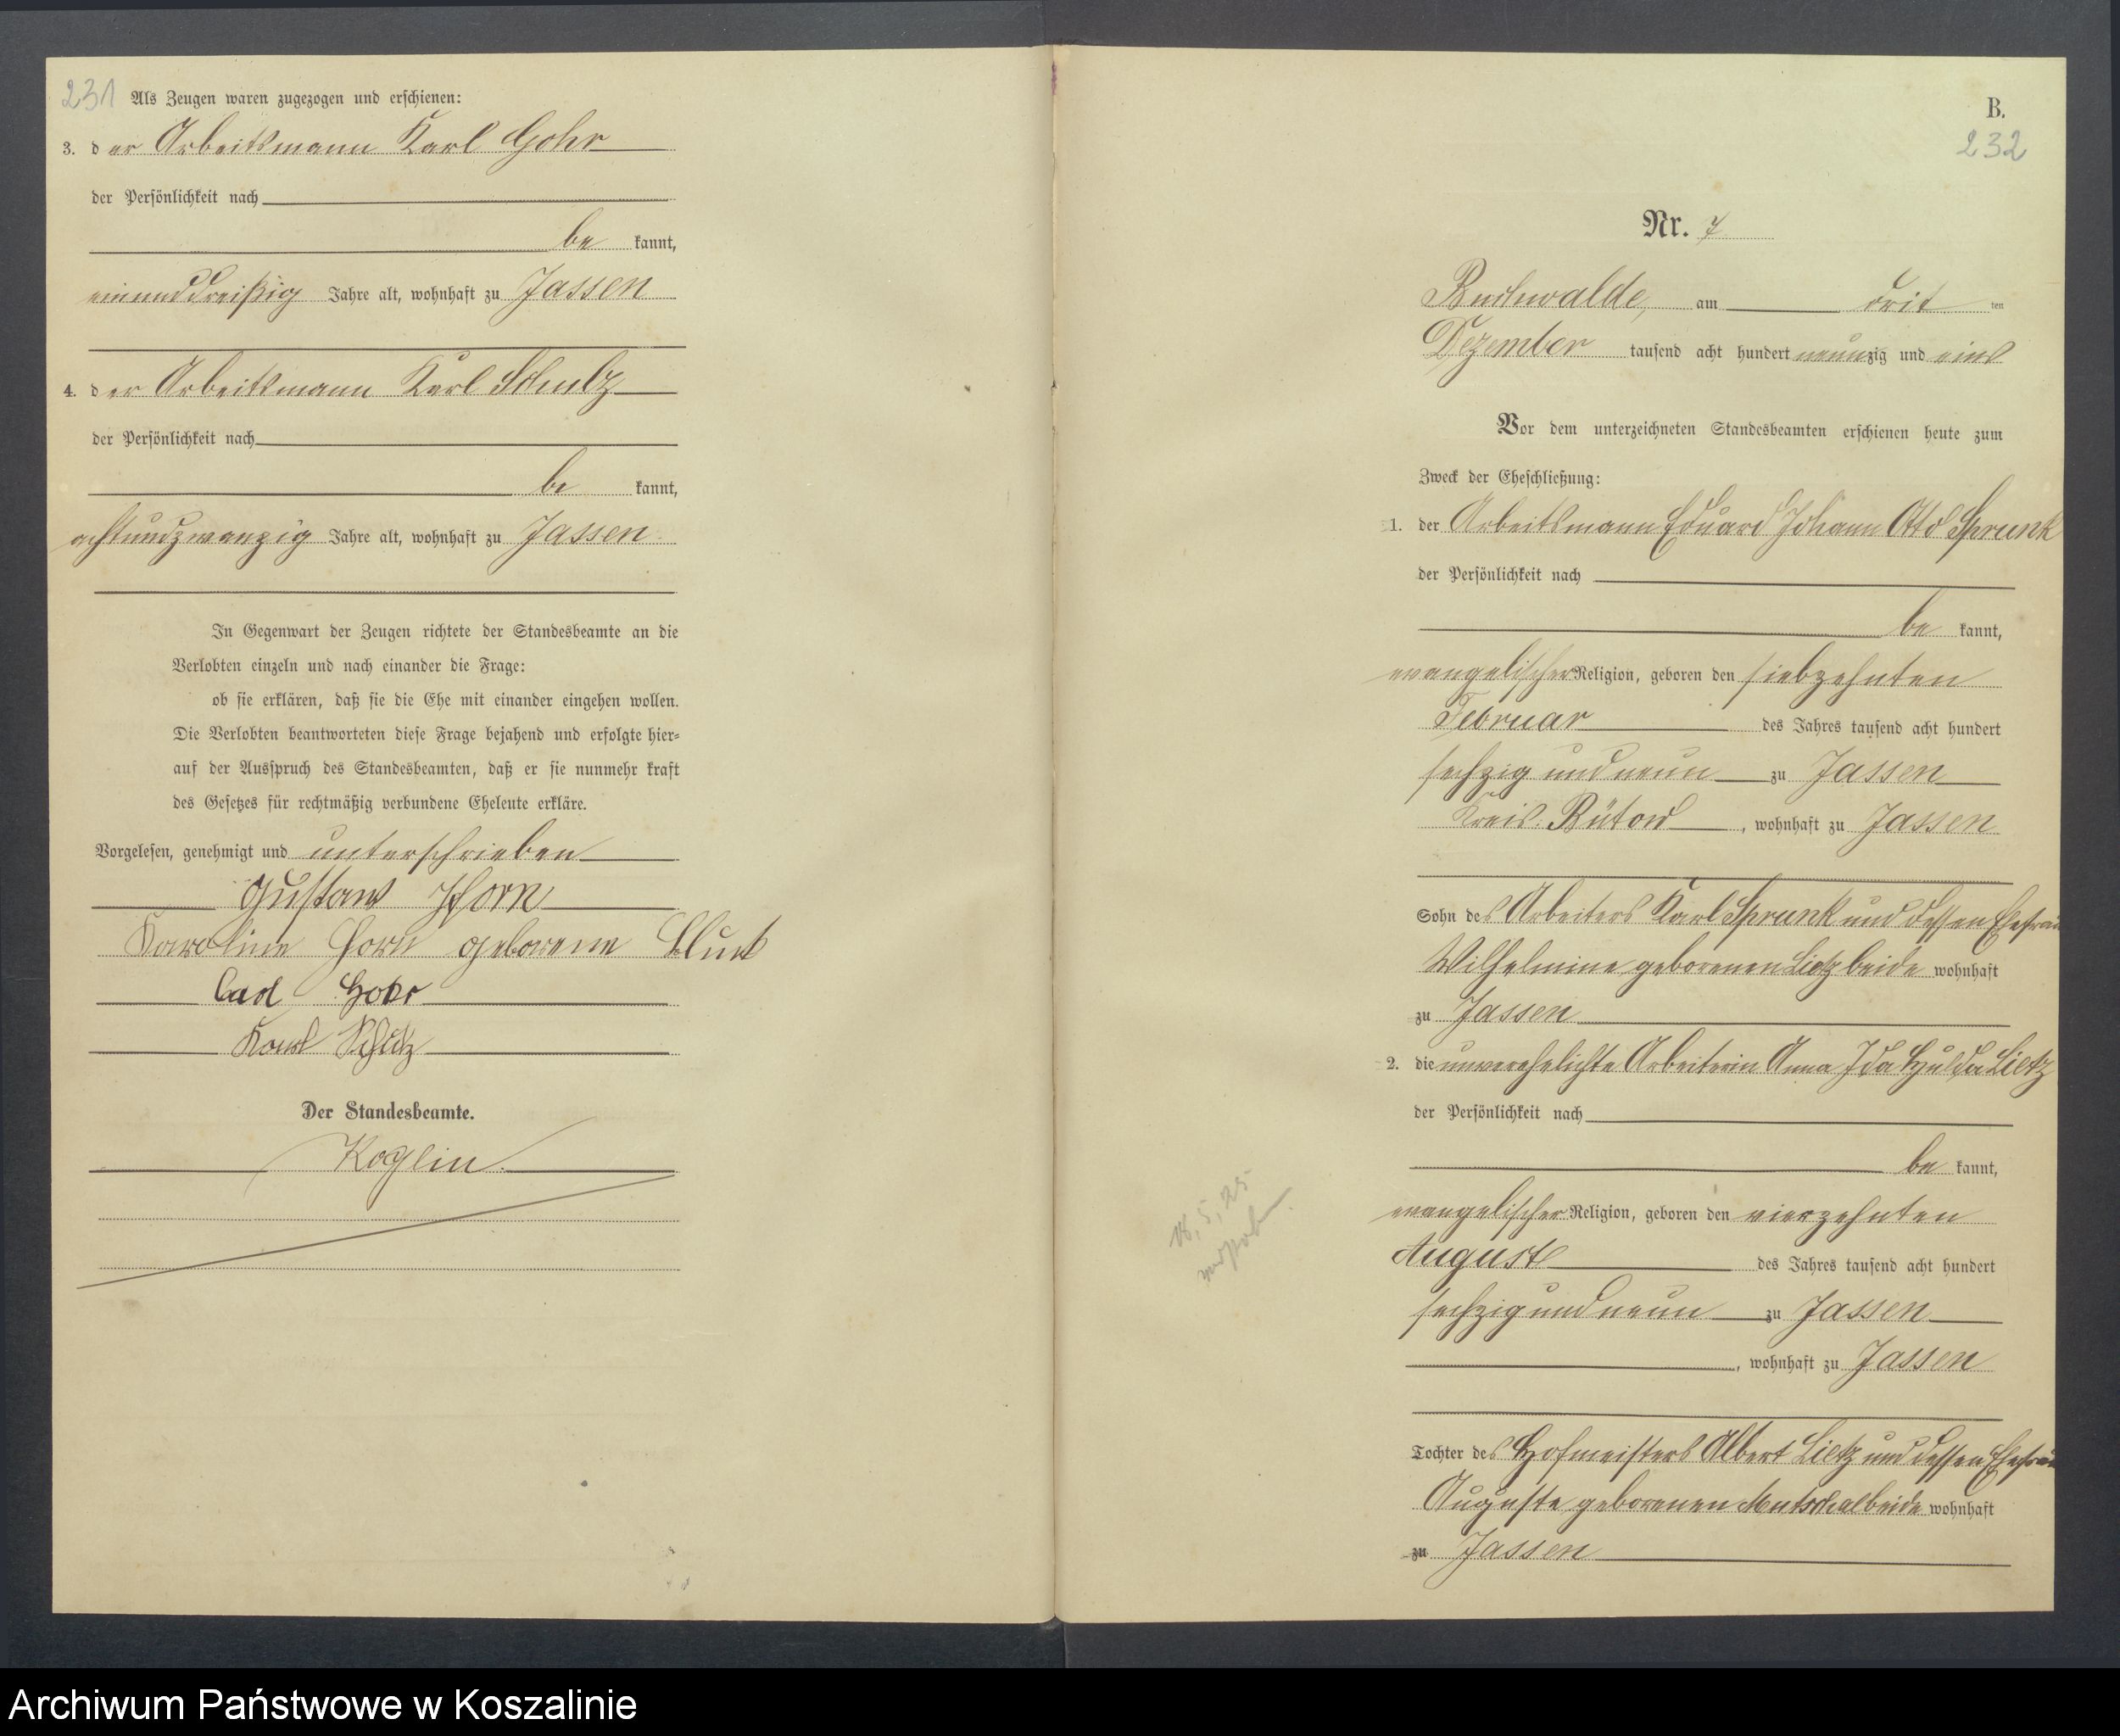 231 Als Zeugen waren zugezogen und erschienen:
3. der Arbeitsmann Karl Gohr
der Persönlichkeit nach
be kannt,
einunddreißig Jahre alt, wohnhaft zu Jassen
4. der Arbeitsmann Karl Schulz
der Persönlichkeit nach
be kannt,
achtundzwanzig Jahre alt, wohnhaft zu Jassen
In Gegenwart der Zeugen richtete der Standesbeamte an die
Verlobten einzeln und nach einander die Frage:
ob sie erklären, daß sie die Ehe mit einander eingehen wollen.
Die Verlobten beantworteten diese Frage bejahend und erfolgte hier-
auf der Ausspruch des Standesbeamten, daß er sie nunmehr kraft
des Gesetzes für rechtmäßig verbundene Eheleute erkläre.
Vorgelesen, genehmigt und unterschrieben
Gustaw Horn
Karoline Horn geborene
Carl Gohr
Karl
Der Standesbeamte.
Koglin.
B.
232
Nr. 7
Buchwalde, am drit ten
Dezember tausend acht hundert neunzig und eins
Vor dem unterzeichneten Standesbeamten erschienen heute zum
Zweck der Eheschließung:
1. der Arbeitsmann Eduard Johann Otto Sprunk
der Persönlichkeit nach
be kannt,
evangelischer Religion, geboren den siebzehnten
Februar des Jahres tausend acht hundert
sechzig und neun zu Jassen
Kreis Bütow, wohnhaft zu Jassen
Sohn des Arbeiters Karl Sprunk und dessen Ehefrau
Wilhelmine geborenen Lietz beide wohnhaft
zu Jassen
2. die unverehelichte Arbeiterin Anna Ida Hulda Lietz
der Persönlichkeit nach
be kannt,
18.5.25
evangelischer Religion, geboren den vierzehnten
August des Jahres tausend acht hundert
sechzig und neun zu Jassen
, wohnhaft zu Jassen
Tochter des Hofmeisters Albert Lietz und dessen Ehefrau
Auguste geborenen Mutschal beide wohnhaft
zu Jassen
Archiwum Państwowe w Koszalinie